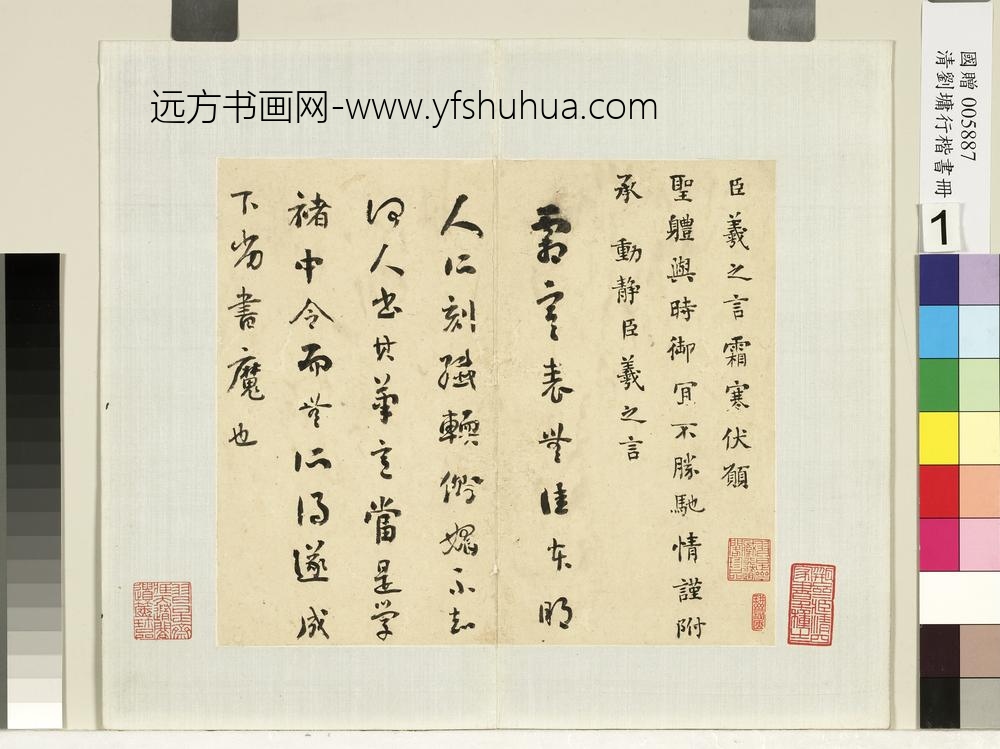 远方书画网-www.yfshuhua.com
國贈 005887
清劉墉行楷書冊
1
臣羲之言霜寒伏願
聖體與時御宜不勝馳情謹附
承 動靜臣羲之言
霜寒表無佳本明
人所刻殊輭俗媚不知
何人書其筆意當是學
褚中令而無所得遂成
下劣書魔也